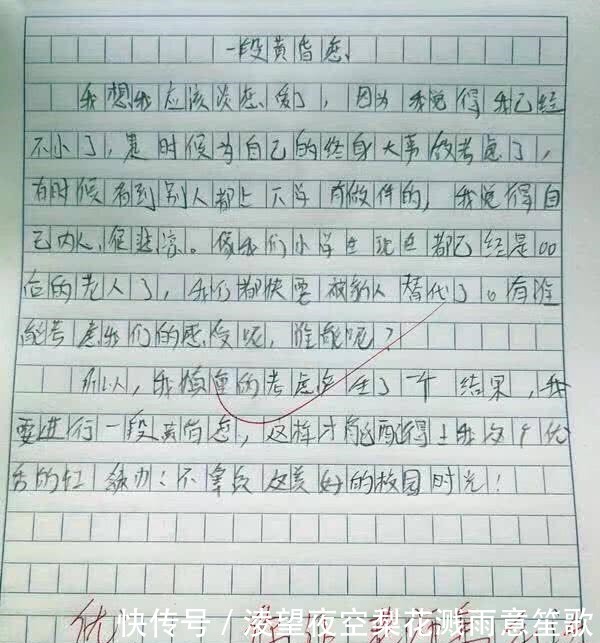 一段黄昏恋
我想我应该谈恋爱了，因为我觉得我已经
不小了，是时候为自己的终身大事做考虑了，
有时候看到别人都上下学有做伴的，我觉得自
己内人很悲凉。像我们小学生现在都已经是00
后的老人了，我们都快要被别人替代了。有谁
能考虑我们的感受呢，谁能呢？
所以，我慎重的考虑产生了一个结果，我
要进行一段黄昏恋，这样才能配得上我这个优
秀的红领巾！不辜负这美好的校园时光！
优
快传号/凌望夜空梨花溅雨意笙歌